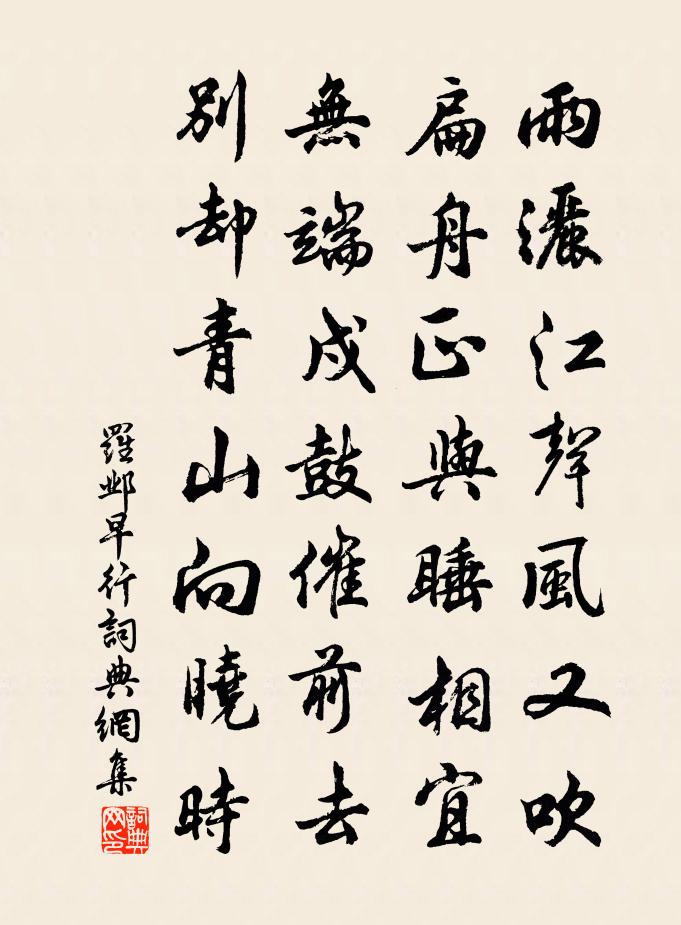 雨灑江聲風又吹
扁舟正與睡相宜
無端戍鼓催前去
別却青山向曉時
羅鄴早行詞典網集
詞典网印